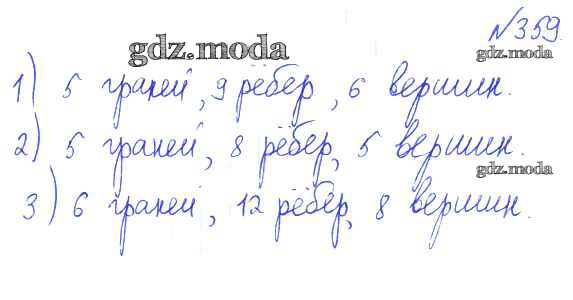 №359.
gdz.moda
gdz.moda
1) 5 граней, 9 рёбер, 6 вершин.
2) 5 граней, 8 рёбер, 5 вершин.
gdz.moda
3) 6 граней, 12 рёбер, 8 вершин.